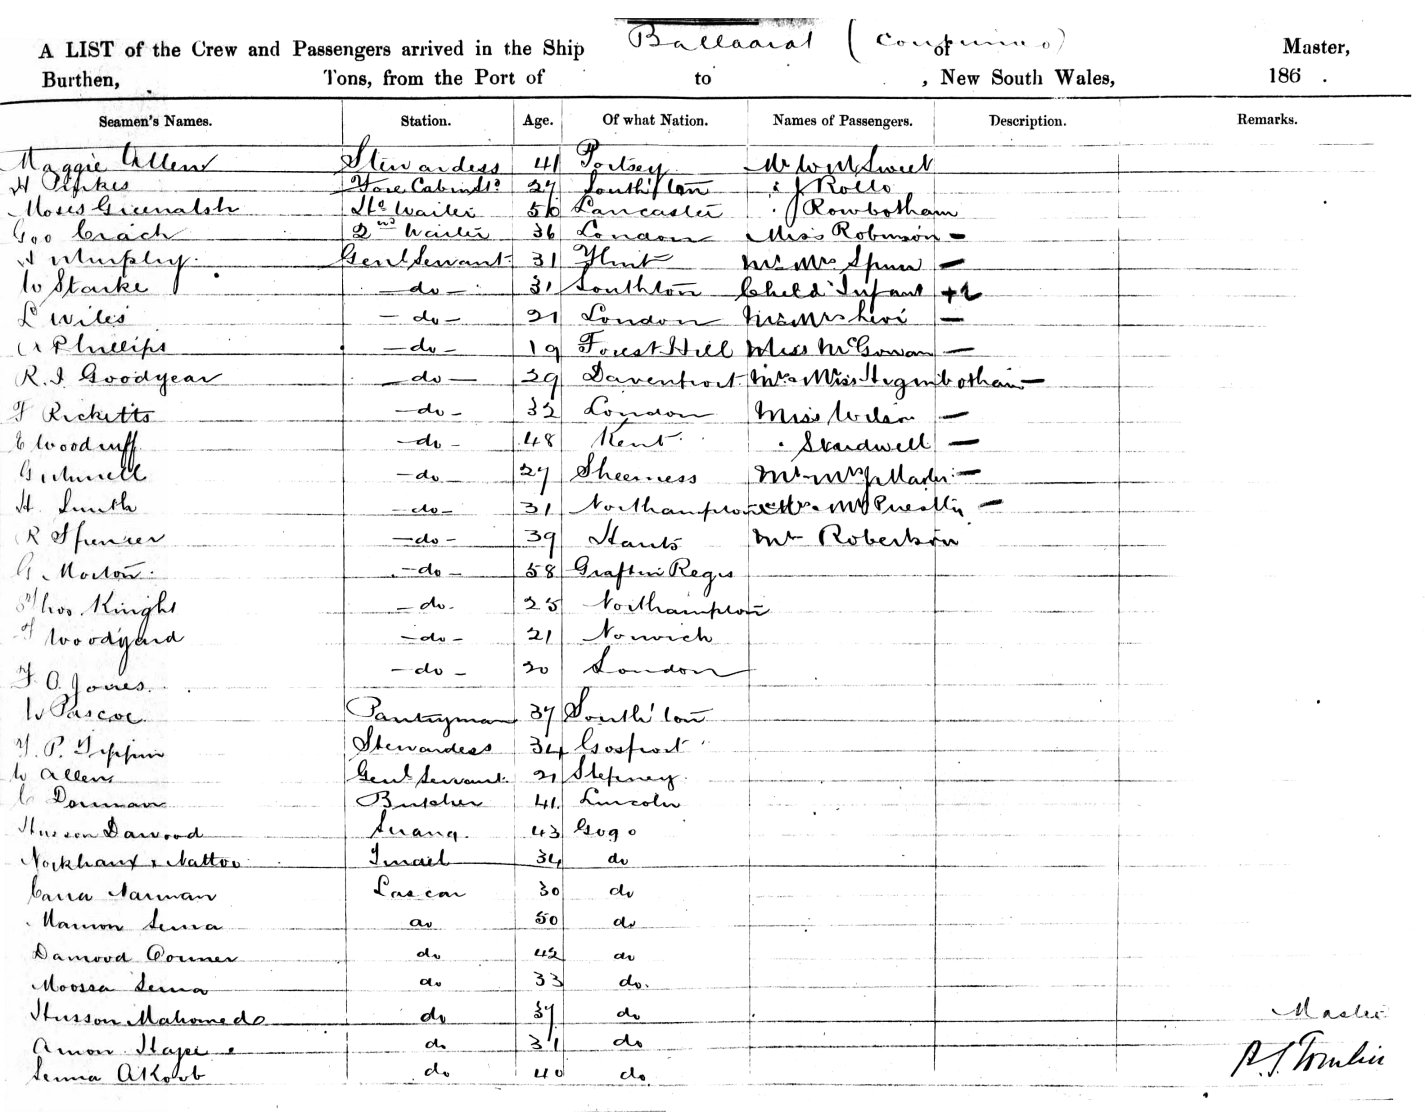 A LIST of the Crew and Passengers arrived in the Ship Ballaarat (continued) of Master,
Burthen, Tons, from the Port of to , New South Wales, 186 .
Seamen's Names. Station. Age. Of what Nation. Names of Passengers. Description. Remarks.
Maggie Allen Stewardess 41 Portsey Mr W M Sweet
H Fore Cabin St. 27 South'ton " J Rollo
Moses Greenalsh Hd Waiter 56 Lancaster " J Rowbotham
Geo Crach 2nd Waiter 36 London Miss Robinson —
H Murphy Genl Servant 31 Flint Mr Mrs —
W Starke — do — 31 Southton Child Infant + 2
L Wiles — do — 21 London Mr Mrs Levi —
A Phillips — do — 19 Forest Hill Miss McGowan —
R. J. Goodyear — do — 29 Davenport Mrs Miss Higinbotham —
F Ricketts — do — 32 London Miss Wilson —
E Woodruff — do — 48 Kent " Stardwell —
G — do — 27 Sheerness Mr Mrs J Master —
H. Smith — do — 31 Northampton Mrs Priestly —
R Spencer — do — 39 Hants Mr Robertson
G. Morton — do — 58 Grafton Regis
Thos Knight — do — 25 Northampton
F Woodyard — do — 21 Norwich
F. O. Jones — do — 20 London
W Pascoe Pantryman 37 South'ton
F. P. Tippin Stewardess 34 Gosport
W Allen Genl Servant 21 Stepney
C Denman Butcher 41 Lincoln
Husson Dawood Serang 43 Gogo
Nattoo 34 do
Narman Lascar 30 do
Mamon Sema do 50 do
Damood Oomer do 42 do
Moossa Sema do 33 do
Husson Mahomed do 37 do Master
Amon Hape do 31 do
Semma Akoob do 40 do A. S. Tomlin